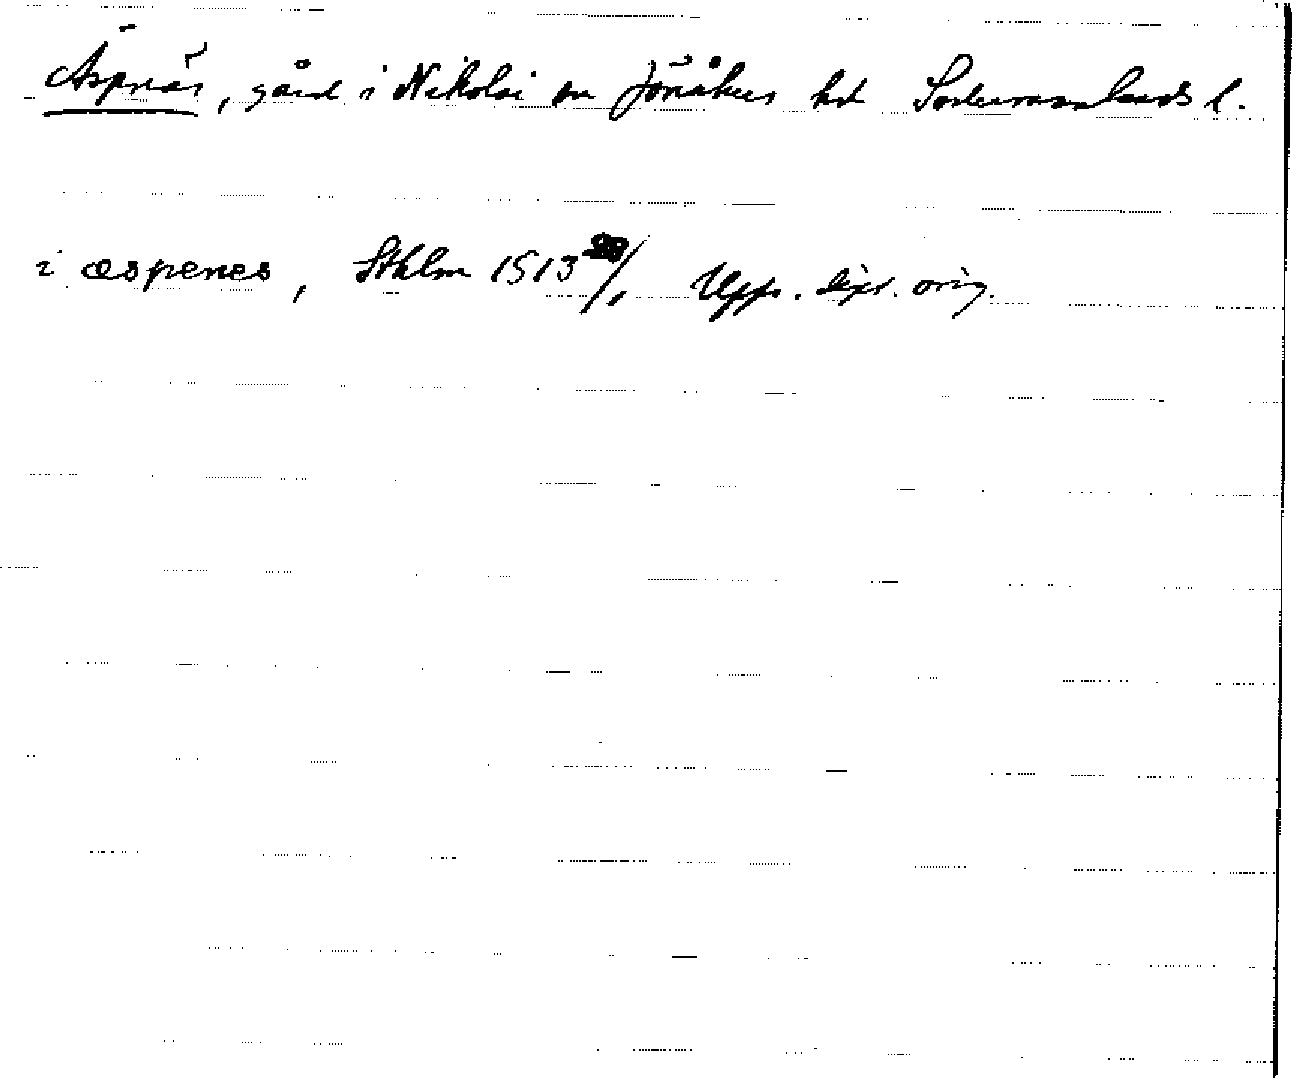 Äspnäs, gård i Nikolai sn Jönåkers hd Södermanlands l.
i æspenes, Sthlm 1513 /1 Upps. dipl. orig.